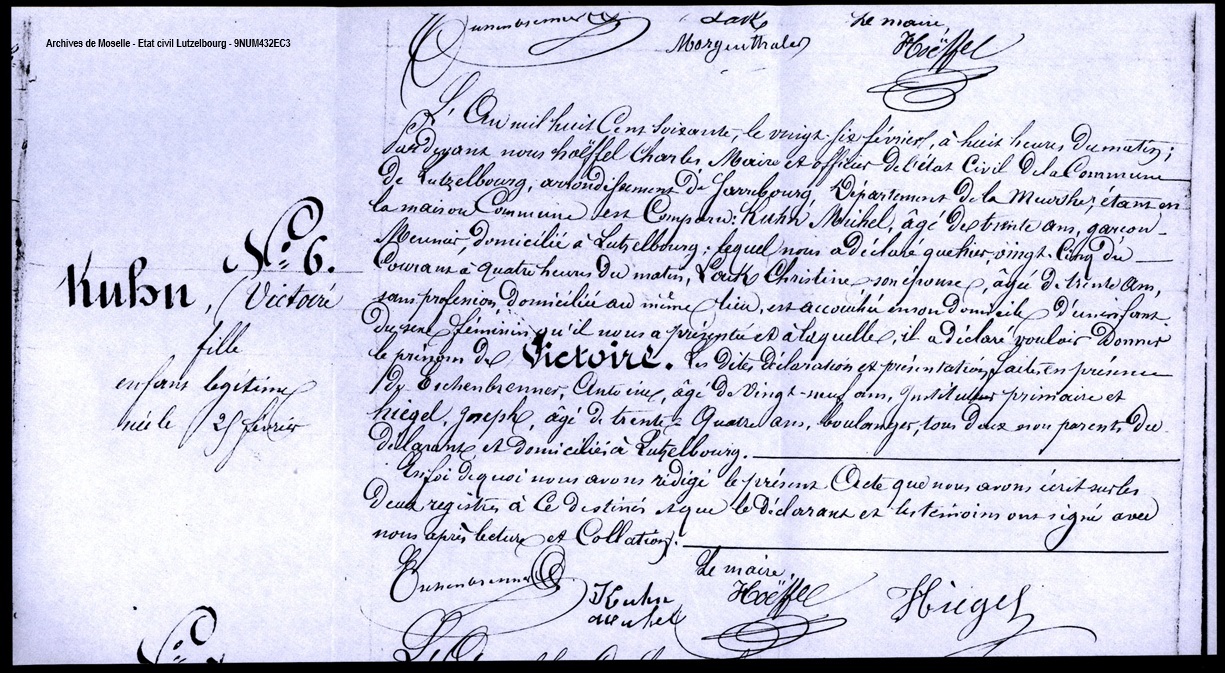 Archives de Moselle - Etat civil Lutzelbourg - 9NUM432EC3
Lack
Morgenthaler
Le maire,
Hoëffel
N.º 6.
Kuhn, Victoire
fille
enfant légitime
née le 25 février
L'An mil huit Cent soixante, le vingt-six février, à huit heures du matin;
Pardevant nous hoëffel Charles Maire et officier de l'état Civil de la Commune
de Lutzelbourg, arrondissement de Sarrebourg, Département de la Meurthe, étant en
la maison Commune est Comparu: Kuhn, Michel, âgé de trente ans, garçon
Meunier, domicilié à Lutzelbourg; lequel nous a déclaré que hier, vingt-Cinq du
Courant à quatre heures du matin, Lack Christine son épouse, âgée de trente ans,
sans profession, domiciliée au même lieu, est accouchée en son domicile d'un enfant
du sexe féminin qu'il nous a présenté et à laquelle il a déclaré vouloir Donner
le prénom de Victoire. Les dites déclaration et présentation faites en présence
de Eschenbrenner, Antoine, âgé de Vingt-neuf ans, Instituteur primaire et
hiegel, Joseph, âgé de trente-Quatre ans, boulanger, tous deux non parents du
déclarant et domiciliés à Lutzelbourg.
En foi de quoi nous avons rédigé le présent Acte que nous avons écrit sur les
Deux registres à Ce destinés et que le Déclarant et les témoins ont signé avec
nous après lecture et Collation.
Kuhn
michel
Le maire,
Hoëffel
Hiegel